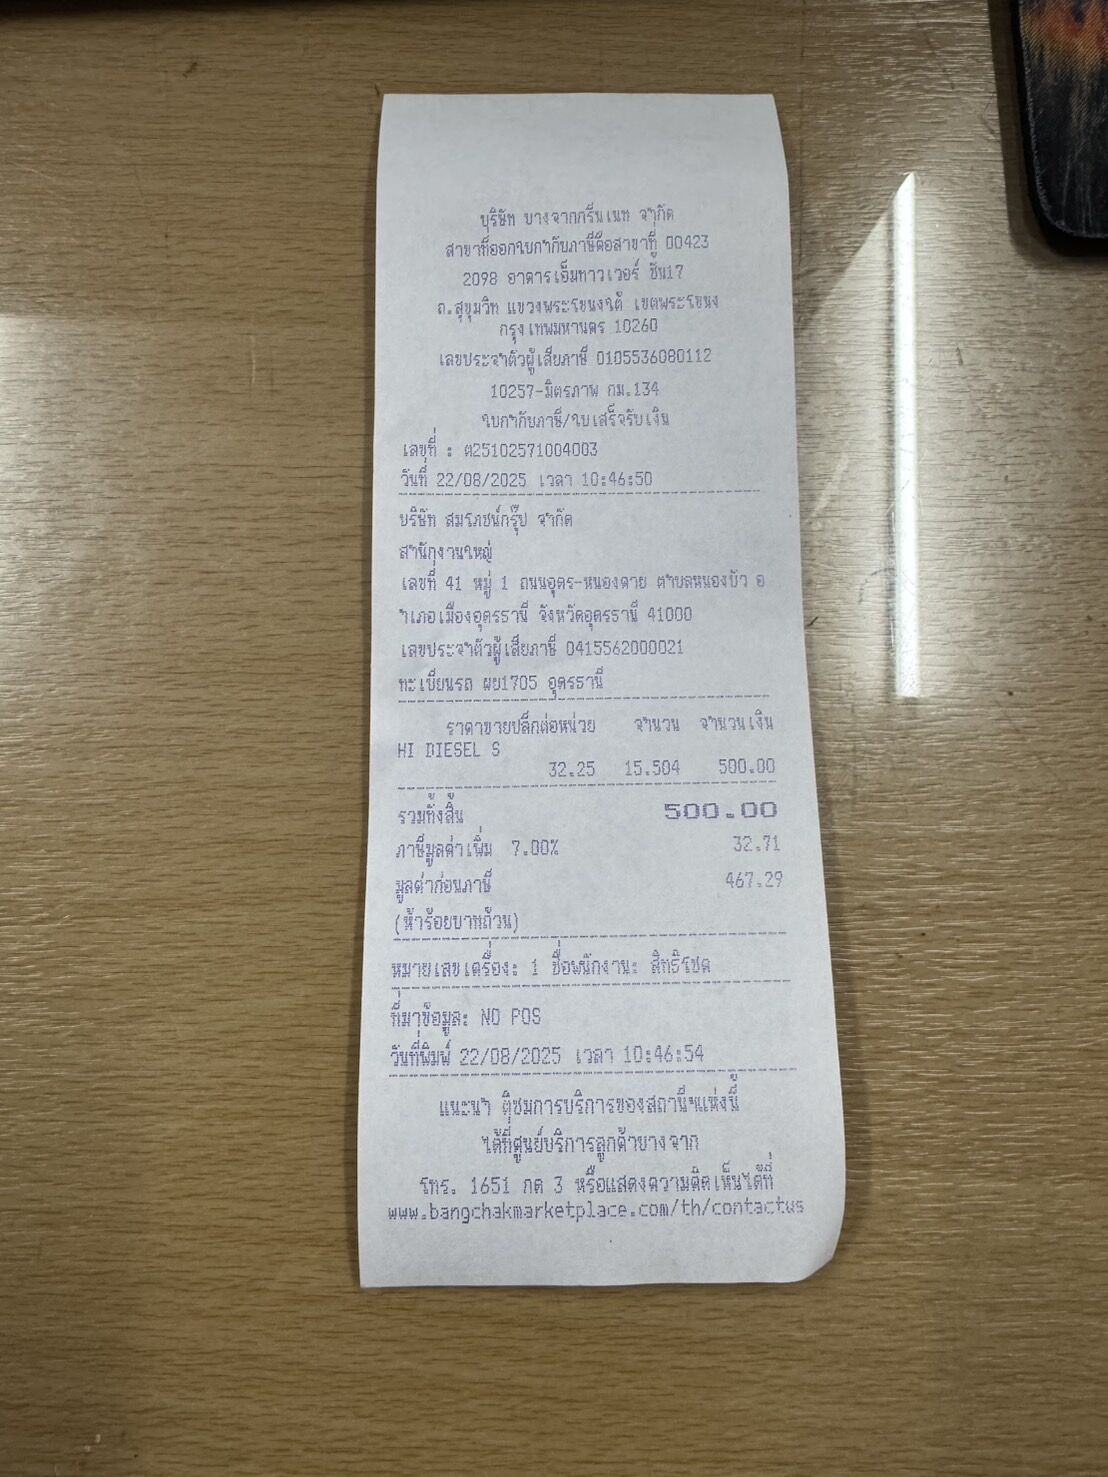 บริษัท บางจากกรีนเนท จำกัด
สาขาที่ออกใบกำกับภาษีคือสาขาที่ 00423
2098 อาคารเอ็มทาวเวอร์ ชั้น17
ถ.สุขุมวิท แขวงพระโขนงใต้ เขตพระโขนง
กรุงเทพมหานคร 10260
เลขประจำตัวผู้เสียภาษี 0105536080112
10257-มิตรภาพ กม.134
ใบกำกับภาษี/ใบเสร็จรับเงิน
เลขที่ : ต25102571004003
วันที่ 22/08/2025 เวลา 10:46:50
บริษัท สมโภชน์กรุ๊ป จำกัด
สำนักงานใหญ่
เลขที่ 41 หมู่ 1 ถนนอุดร-หนองคาย ตำบลหนองบัว อ
ำเภอเมืองอุดรธานี จังหวัดอุดรธานี 41000
เลขประจำตัวผู้เสียภาษี 0415562000021
ทะเบียนรถ ผย1705 อุดรธานี
ราคาขายปลีกต่อหน่วย จำนวน จำนวนเงิน
HI DIESEL S
32.25 15.504 500.00
รวมทั้งสิ้น 500.00
ภาษีมูลค่าเพิ่ม 7.00% 32.71
มูลค่าก่อนภาษี 467.29
(ห้าร้อยบาทถ้วน)
หมายเลขเครื่อง: 1 ชื่อพนักงาน: สิทธิโชค
ที่มาข้อมูล: NO POS
วันที่พิมพ์ 22/08/2025 เวลา 10:46:54
แนะนำ ติชมการบริการของสถานีฯแห่งนี้
ได้ที่ศูนย์บริการลูกค้าบางจาก
โทร. 1651 กด 3 หรือแสดงความคิดเห็นได้ที่
www.bangchakmarketplace.com/th/contactus